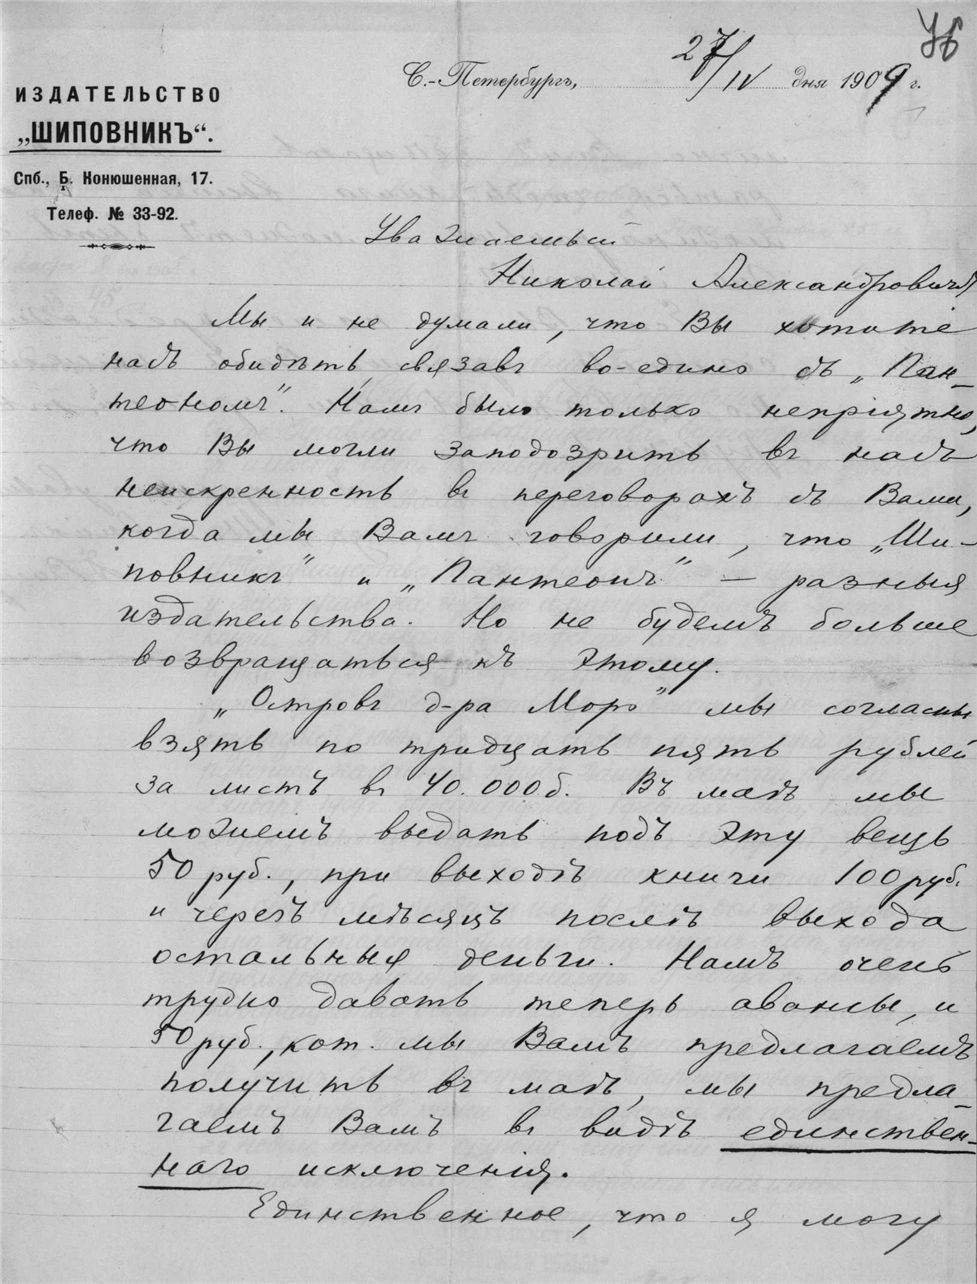 76
С.-Петербургъ, 27/IV дня 1909 г.
ИЗДАТЕЛЬСТВО
„ШИПОВНИКЪ“.
Спб., Б. Конюшенная, 17.
Телеф. № 33-92.
Уважаемый
Николай Александровичъ
Мы и не думали, что Вы хотите
насъ обидѣть, связавъ во-едино съ „Пан-
теономъ“. Намъ было только непріятно,
что Вы могли заподозрить въ насъ
неискренность въ переговорахъ съ Вами,
когда мы Вамъ говорили, что „Ши-
повникъ“ и „Пантеонъ“ — разныя
издательства. Но не будемъ больше
возвращаться къ этому.
„Островъ д-ра Моро“ мы согласны
взять по тридцать пять рублей
за листъ въ 40.000 б. Въ маѣ мы
можемъ выдать подъ эту вещь
50 руб., при выходѣ книги 100 руб.
и черезъ мѣсяцъ послѣ выхода
остальныя деньги. Намъ очень
трудно давать теперь авансы, и
50 руб., кот. мы Вамъ предлагаемъ
получить въ маѣ, мы предла-
гаемъ Вамъ въ видѣ единствен-
наго исключенія.
Единственное, что я могу